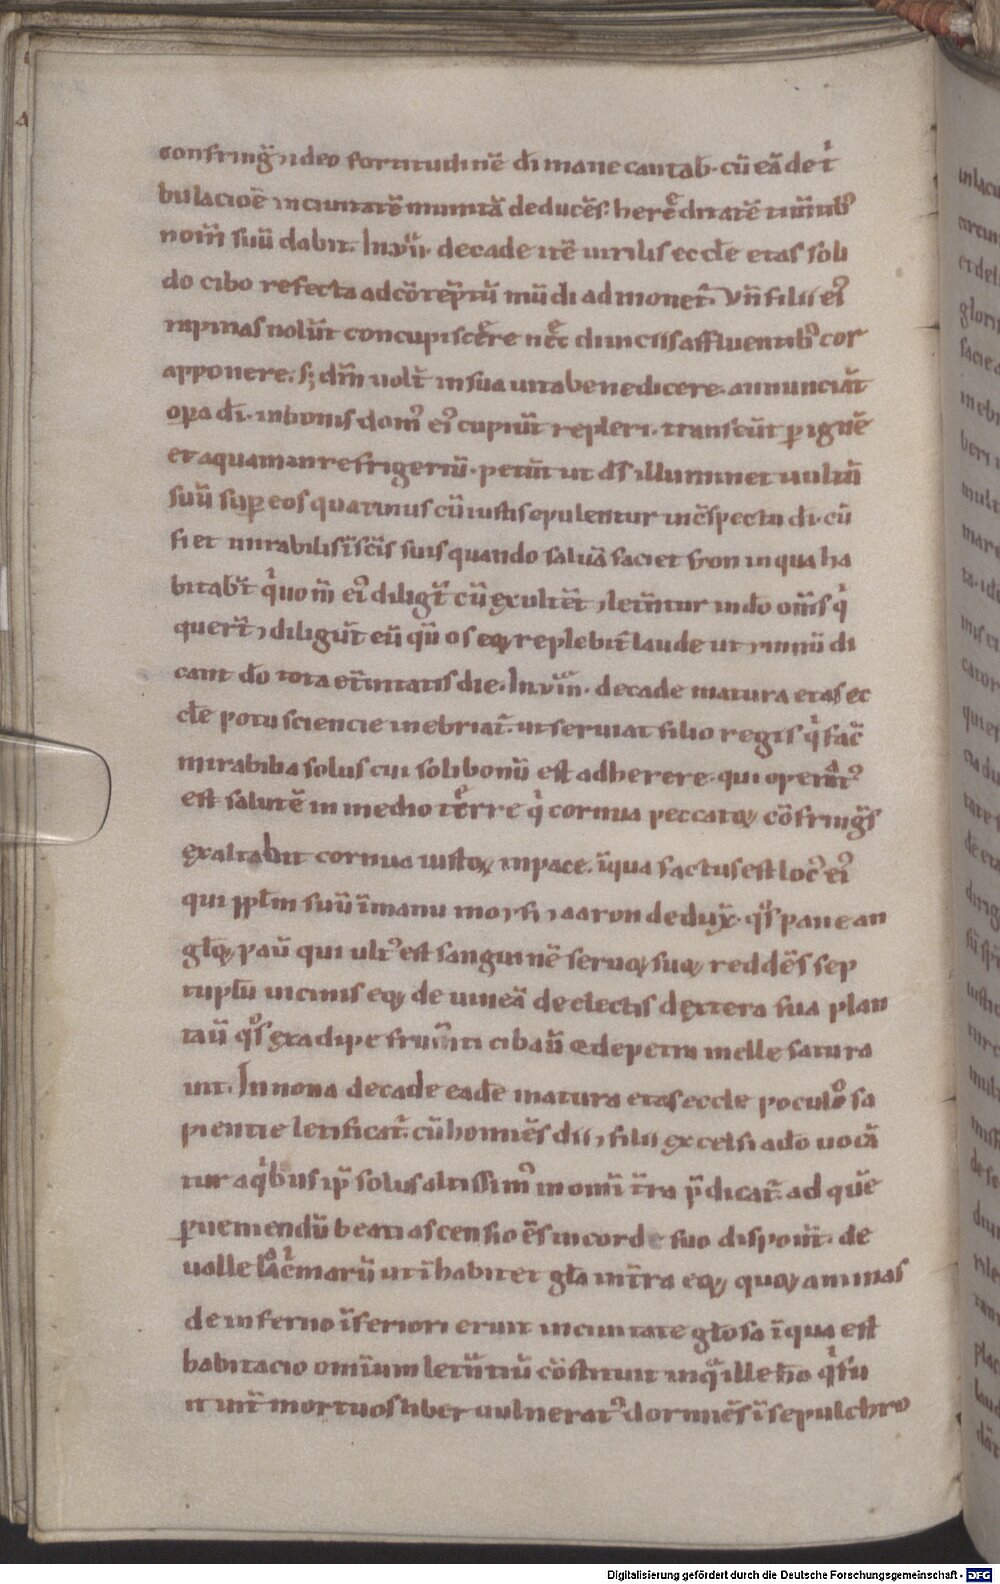 confring̃ ⁊ ideo fortitudinē dī mane cantab̄· cū eā de t͛i
bulacioē in ciuitatē munitā deducēs· hereditatē timtib᷒
nom̄ suū dabit. In.vii. decade itē uirilis eccl̄e etas soli
do cibo refecta ad cōtēptū mūdi admonet᷑. vn̄ filii ei᷒
rapinas nolūt concupiscere nec diuiciis affluentib᷒ cor
apponere. s; dm̄ uolt̄ in sua uita benedicere. annunciāt
opa dī. in bonis dom᷒ ei᷒ cupiūt repleri. transeūt ꝑ ignē
et aquam in refrigeriū. petūt ut ds̄ illuminet uultū
suū suꝑ eos quatinus cū iustis epulentur in cs̄pectu dī. cū
fiet mirabilis ī scīs suis quando saluā faciet syon in qua ha
bitab̄t qͥ nom̄ ei᷒ diligūt cū exultēt ⁊ letētur in do om̄s qͥ
querūt ⁊ diligūt eū qn̄ os eoꝝ replebit᷑ laude ut ymnū di
cant do tota et̄nitatis die. In.viii. decade matura etas ec
cl̄e potu sciencie inebriat᷑. ut seruiat filio regis qͥ fac̄
mirabilia solus cui soli bonū est adherere. qui operat᷒
est salutē in medio terre qͥ cornua peccatoꝝ cōfring̃s
exaltabit cornua iustoꝝ in pace. ī qua factus est loc᷒ ei᷒
qui ppl̄m suū ī manu moysi ⁊ aaron deduxͭ. qͦs pane an
gloꝝ pauͭ qui ult᷒ est sanguinē seruoꝝ suoꝝ reddēs sep
tuplū uicinis eoꝝ de uineā de electis dextera sua plan
tauͭ qͦs ex adipe frumti cibauͭ & de petra melle satura
uit. In nona decade eadē matura etas eccle poculo sa
pientie letificat᷑. cū homies dii ⁊ filii excelsi a do uocā
tur a qͥbus ip̄ solus altissim᷒ in omī tr̄a p̄dicat᷑. ad quē
ꝑueniendū beati ascensioēs in corde suo disponūt. de
ualle lacͥmarū ut īhabitet gla in tr̄a eoꝝ quoꝝ animas
de inferno īferiori eruit in ciuitate glosa ī qua est
habitacio omium letn̄tiū cōstituit in q̄ ille ho qͥ fu
it int̄ mortuos liber uulnerat᷒ dormiēs ī sepulchro
Digitalisierung gefördert durch die Deutsche Forschungsgemeinschaft - DFG